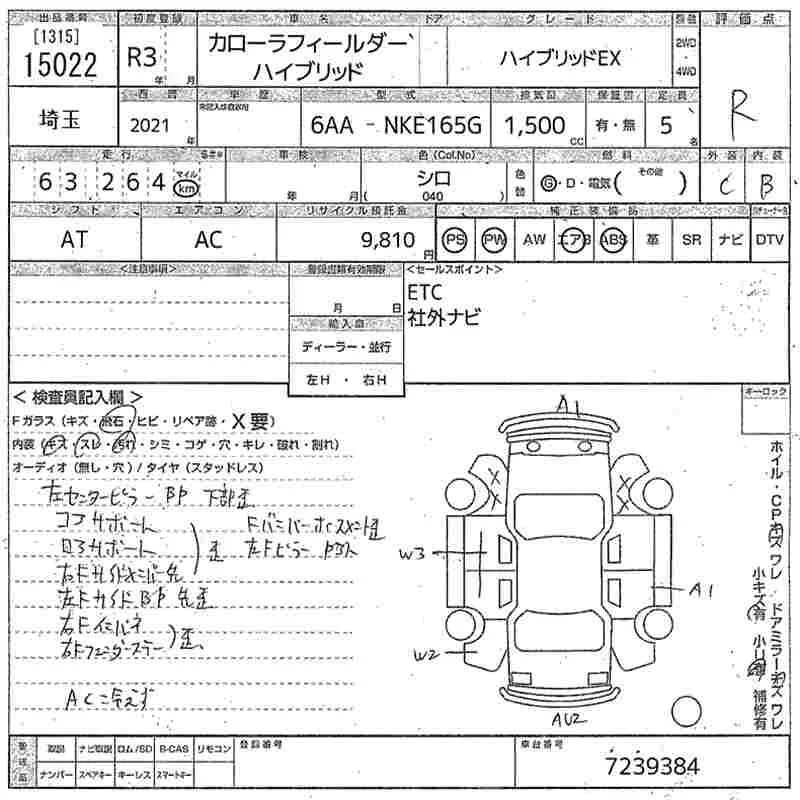 出品番号 初度登録 車名 ドア グレード 評価点
[1315]
15022 R3 年 月 カローラフィールダー ハイブリッド ハイブリッドEX 2WD ・ 4WD R
埼玉 西暦 車歴 型式 排気量 保証書 定員
2021 年 6AA - NKE165G 1,500 cc 有・無 5 名
走行 車検 色(Col.No) 燃料 外装 内装
63 264 マイル km 年 月 シロ ( 040 ) 色替 G・D・電気( その他 ) C B
シフト エアコン リサイクル預託金 純正装備品
AT AC 9,810 円 PS PW AW エアB ABS 革 SR ナビ DTV
<注意事項> 登録書類有効期限 <セールスポイント>
月 日 ETC
輸入車 社外ナビ
ディーラー・並行
左H ・ 右H
< 検査員記入欄 > キーロック
Fガラス(キズ・飛石・ヒビ・リペア跡・X要)
内装(キズ・スレ・汚れ・シミ・コゲ・穴・キレ・破れ・割れ)
オーディオ(無し・穴)/タイヤ(スタッドレス)
左センターピラーBP 下部歪
コアサポート
右Fサイドメンバー先
左FサイドBP 先歪
右Fインパネ
右Fフェンダーステー 歪
ACニ冷えず
A1
W3
A1
W2
AU2
ホイル・CPキズ ワレ ドアミラーキズ ワレ
小キズ有 小凹有 補修有
取説 ナビ取説 ロム/SD B-CAS リモコン 登録番号 車台番号
ナンバー スペアキー キーレス スマートキー 7239384